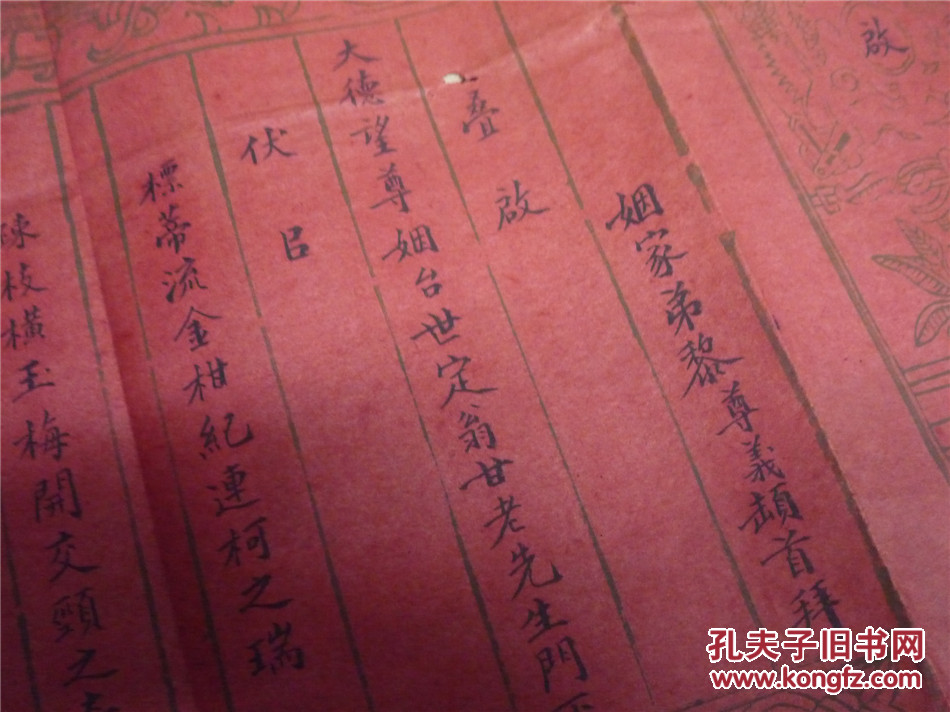 啟
姻家弟黎尊義頓首拜
啟
大德望尊姻台世定翁甘老先生門
伏
㠯
標蒂流金柑紀連柯之瑞
枝橫玉梅開交頸之
孔夫子旧书网
www.kongfz.com